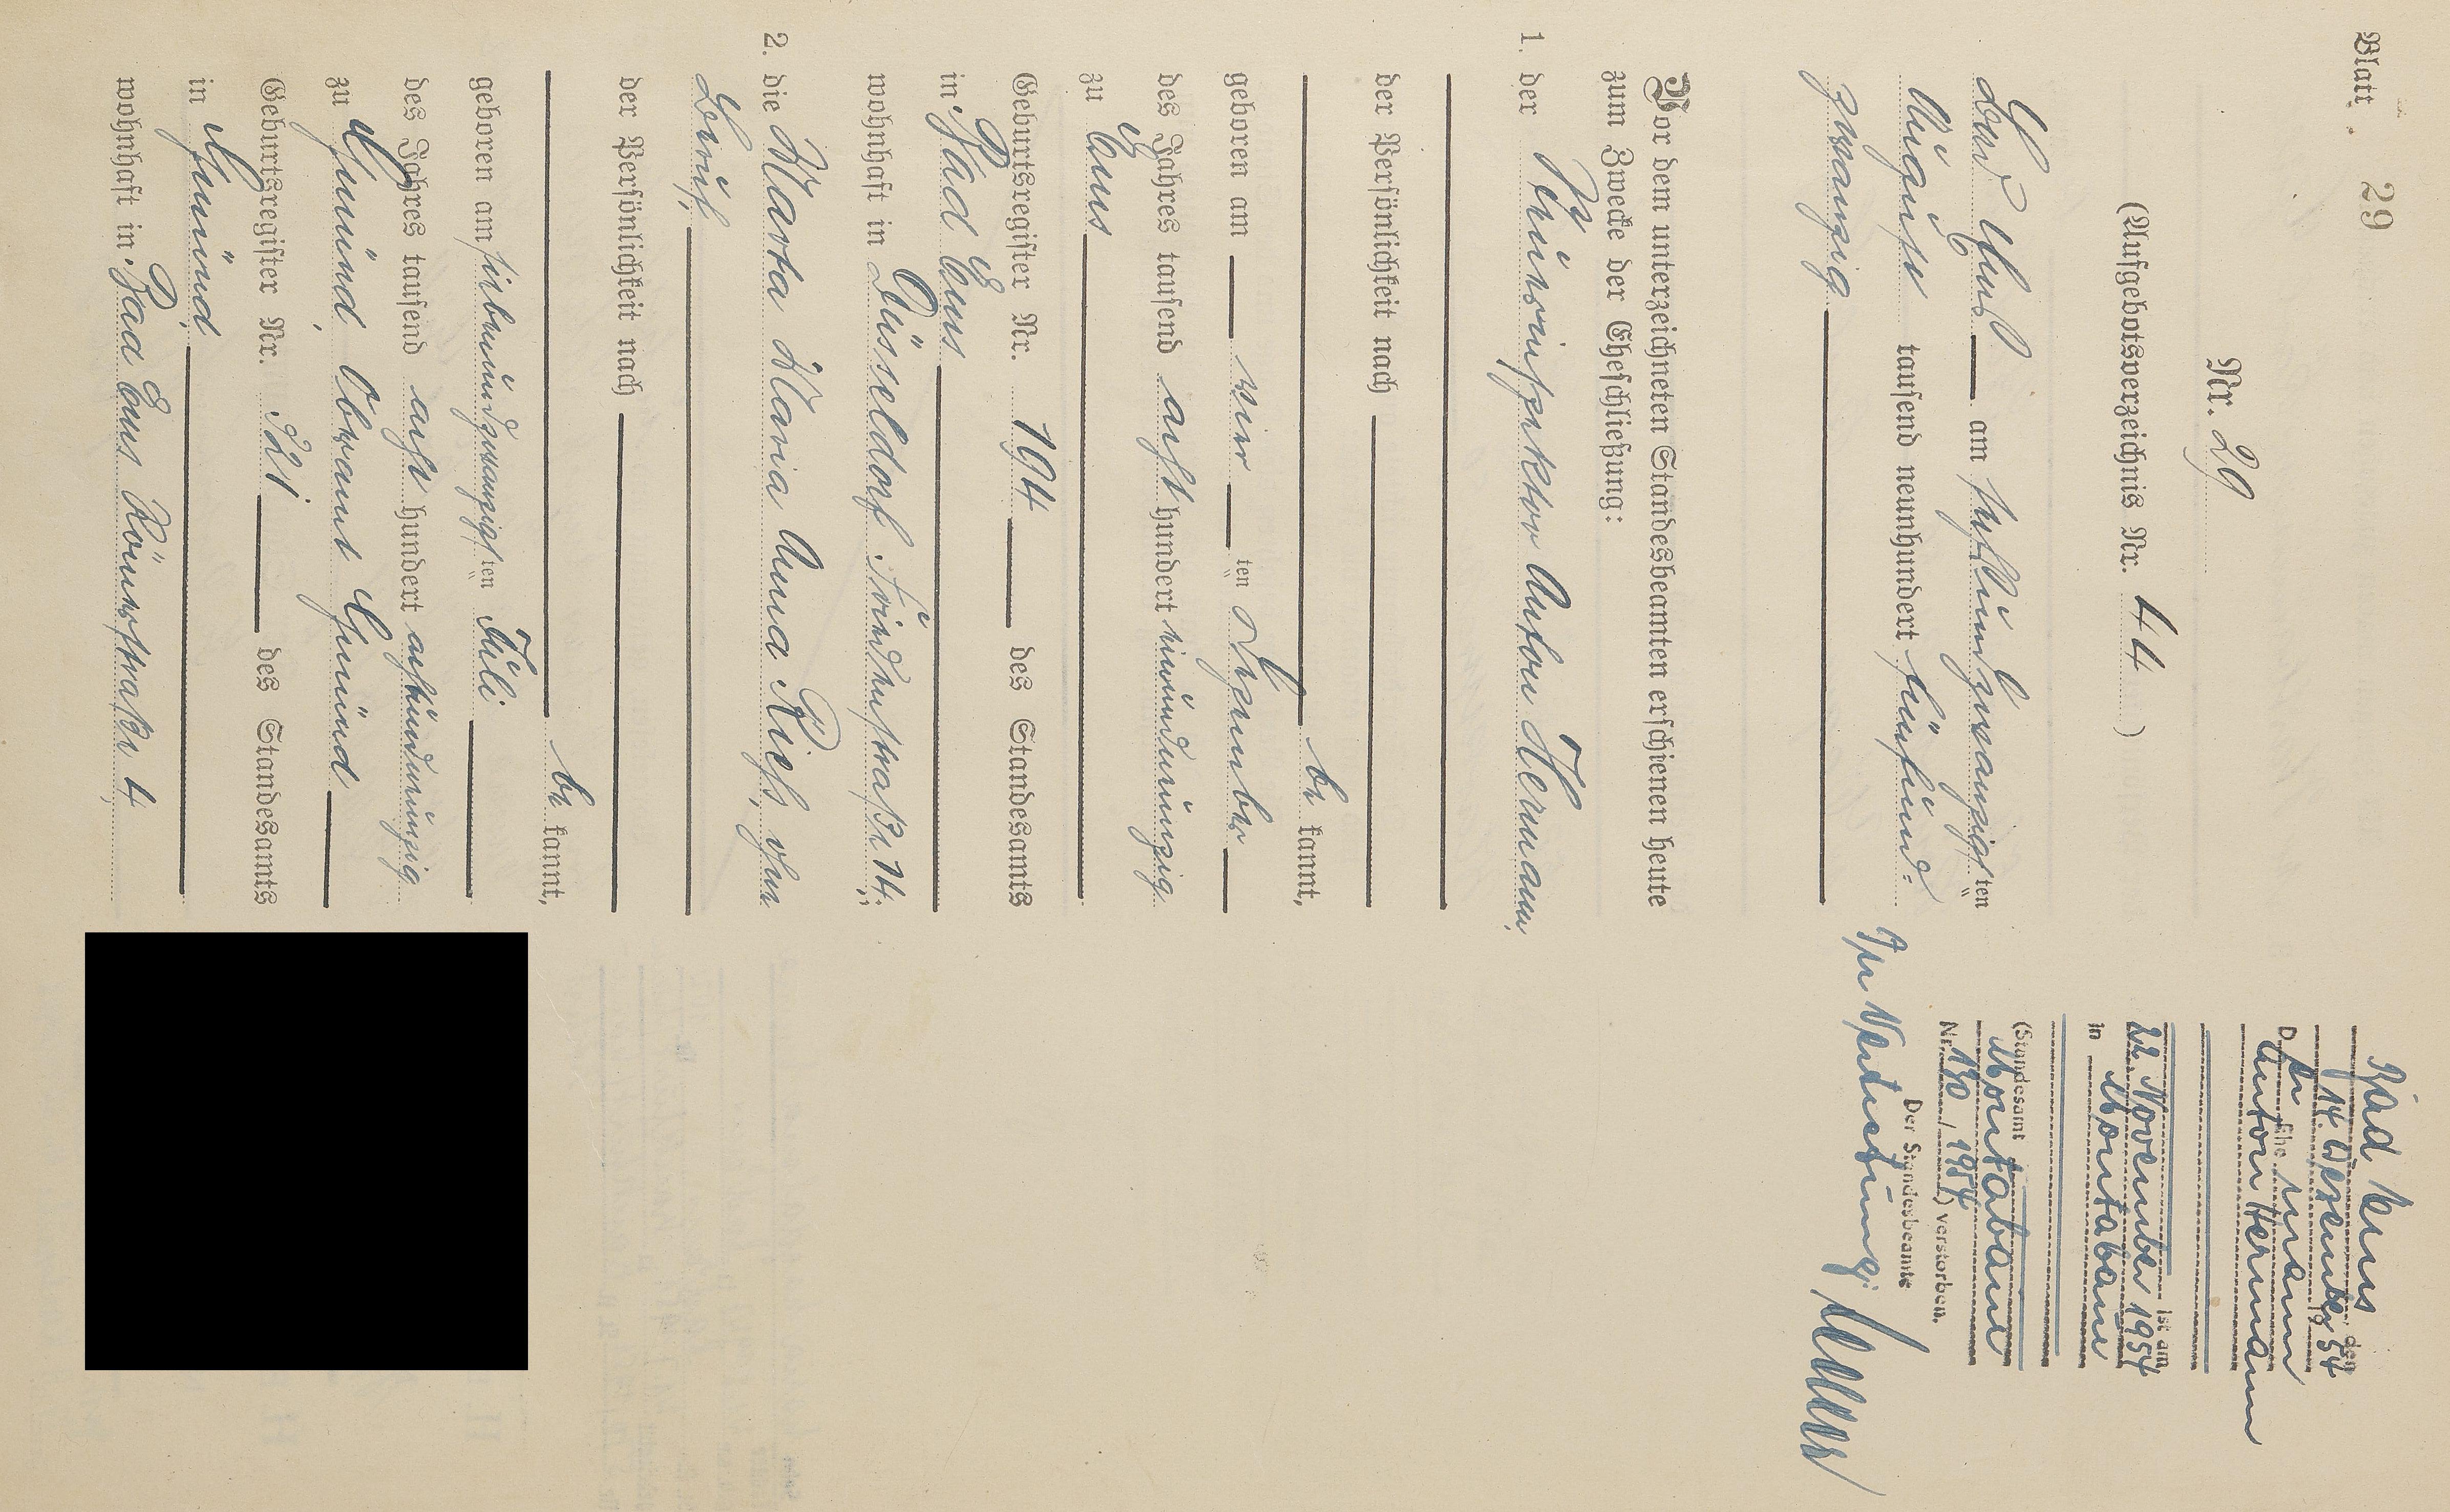 Blatt 29
Nr. 29
(Aufgebotsverzeichnis Nr. 44)
Bad Ems am sechsundzwanzigsten
August tausend neunhundert fünfund-
zwanzig
Vor dem unterzeichneten Standesbeamten erschienen heute
zum Zwecke der Eheschließung:
1. der Anton Hermann,
der Persönlichkeit nach
be kannt,
geboren am vier ten Dezember
des Jahres tausend acht hundert
zu Ems
Geburtsregister Nr. 194 des Standesamts
in Bad Ems
wohnhaft in Düsseldorf 14.;
2. die Maria Anna Rieß, ohne
Beruf,
der Persönlichkeit nach
be kannt,
geboren am siebenundzwanzigsten Juli
des Jahres tausend acht hundert achtundneunzig
zu Gmünd, Oberamt Gmünd
Geburtsregister Nr. 321 des Standesamts
in Gmünd,
wohnhaft in Bad Ems Römerstraße 4,
Bad Ems, den
14. Dezember 1954
Der Ehemann
Anton Hermann
ist am
22. November 1954
in Montabaur
(Standesamt
Montabaur
Nr. 130 / 1954) verstorben.
Der Standesbeamte
In Vertretung: